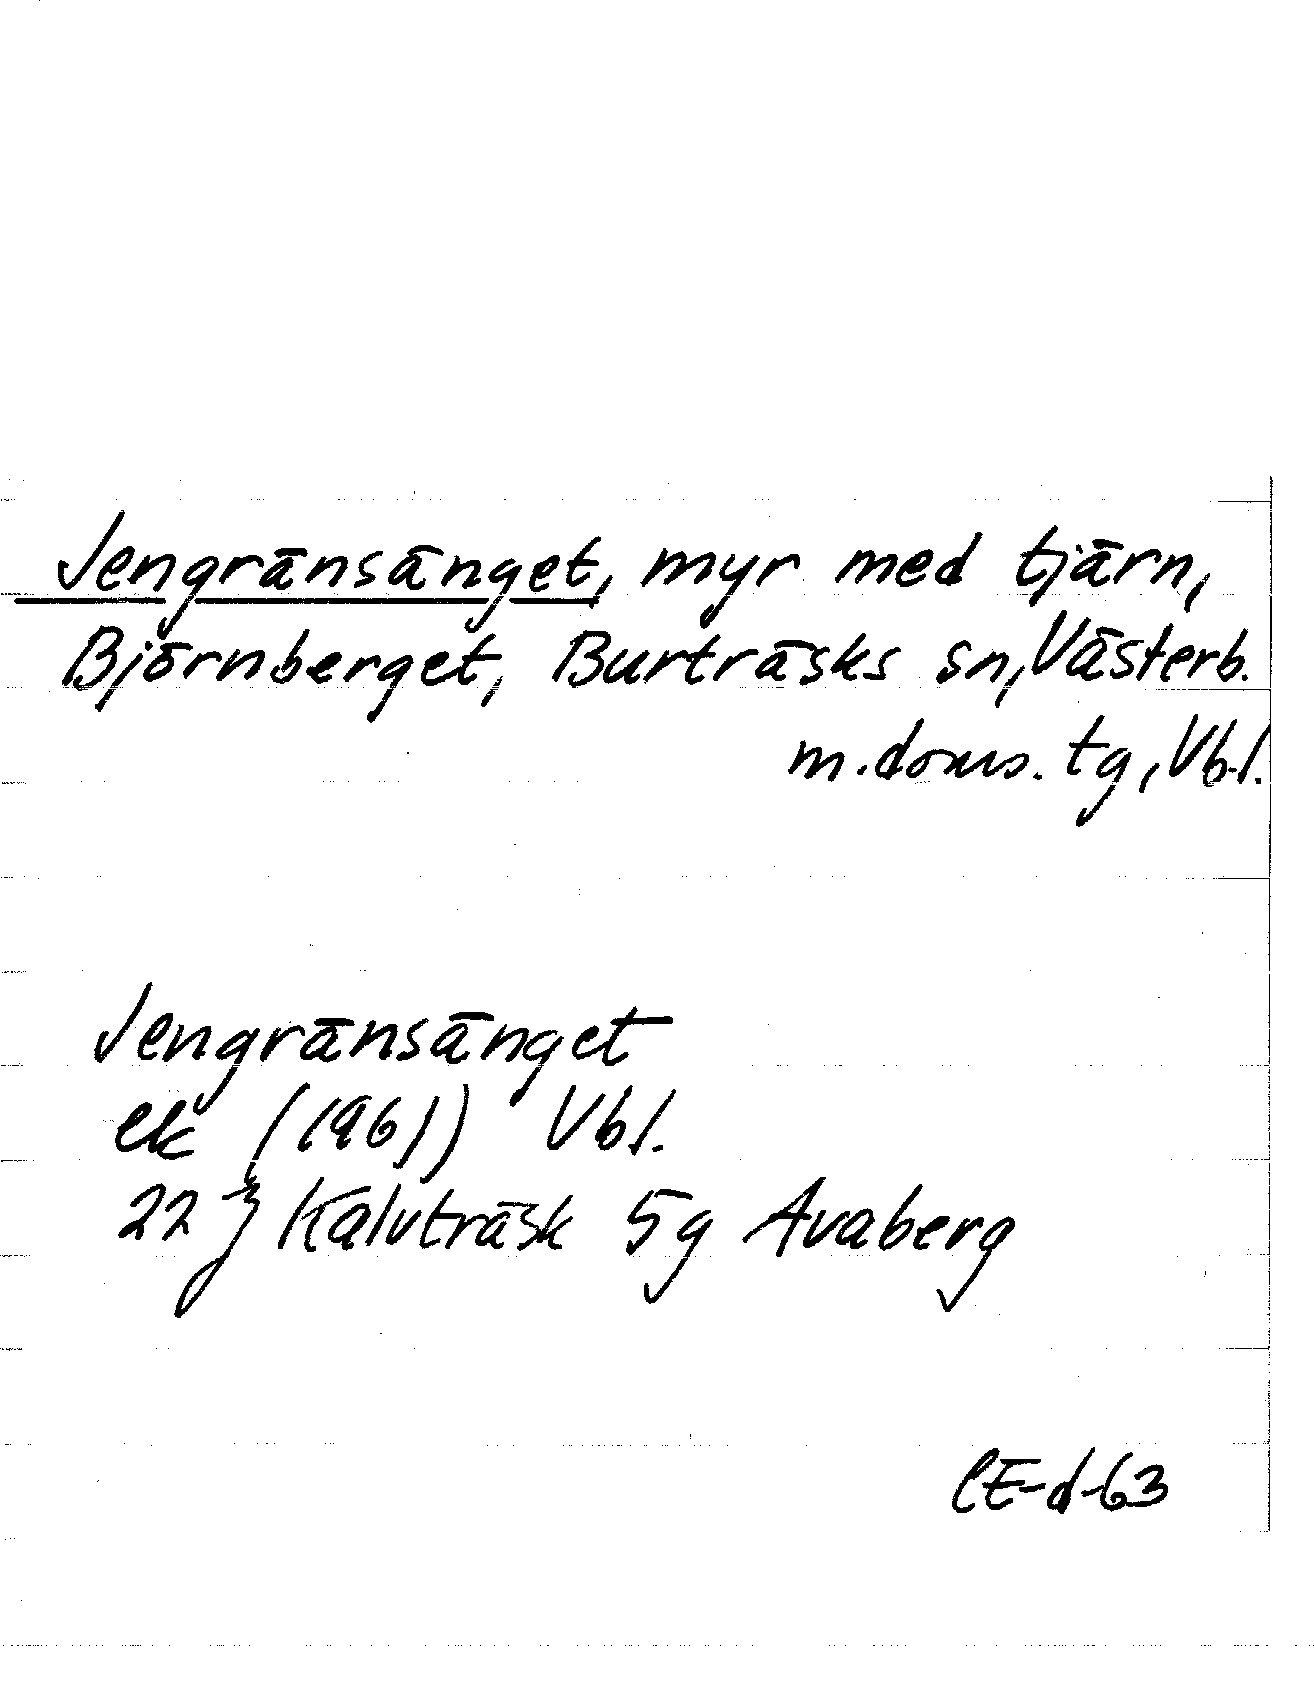 Jengränsänget, myr med tjärn,
Björnberget, Burträsks sn, Västerb.
m. doms. tg, Vb.l.
Jengränsänget
ek (1961) Vbl.
22 J Kalvträsk 5g Avaberg
CE-d-63